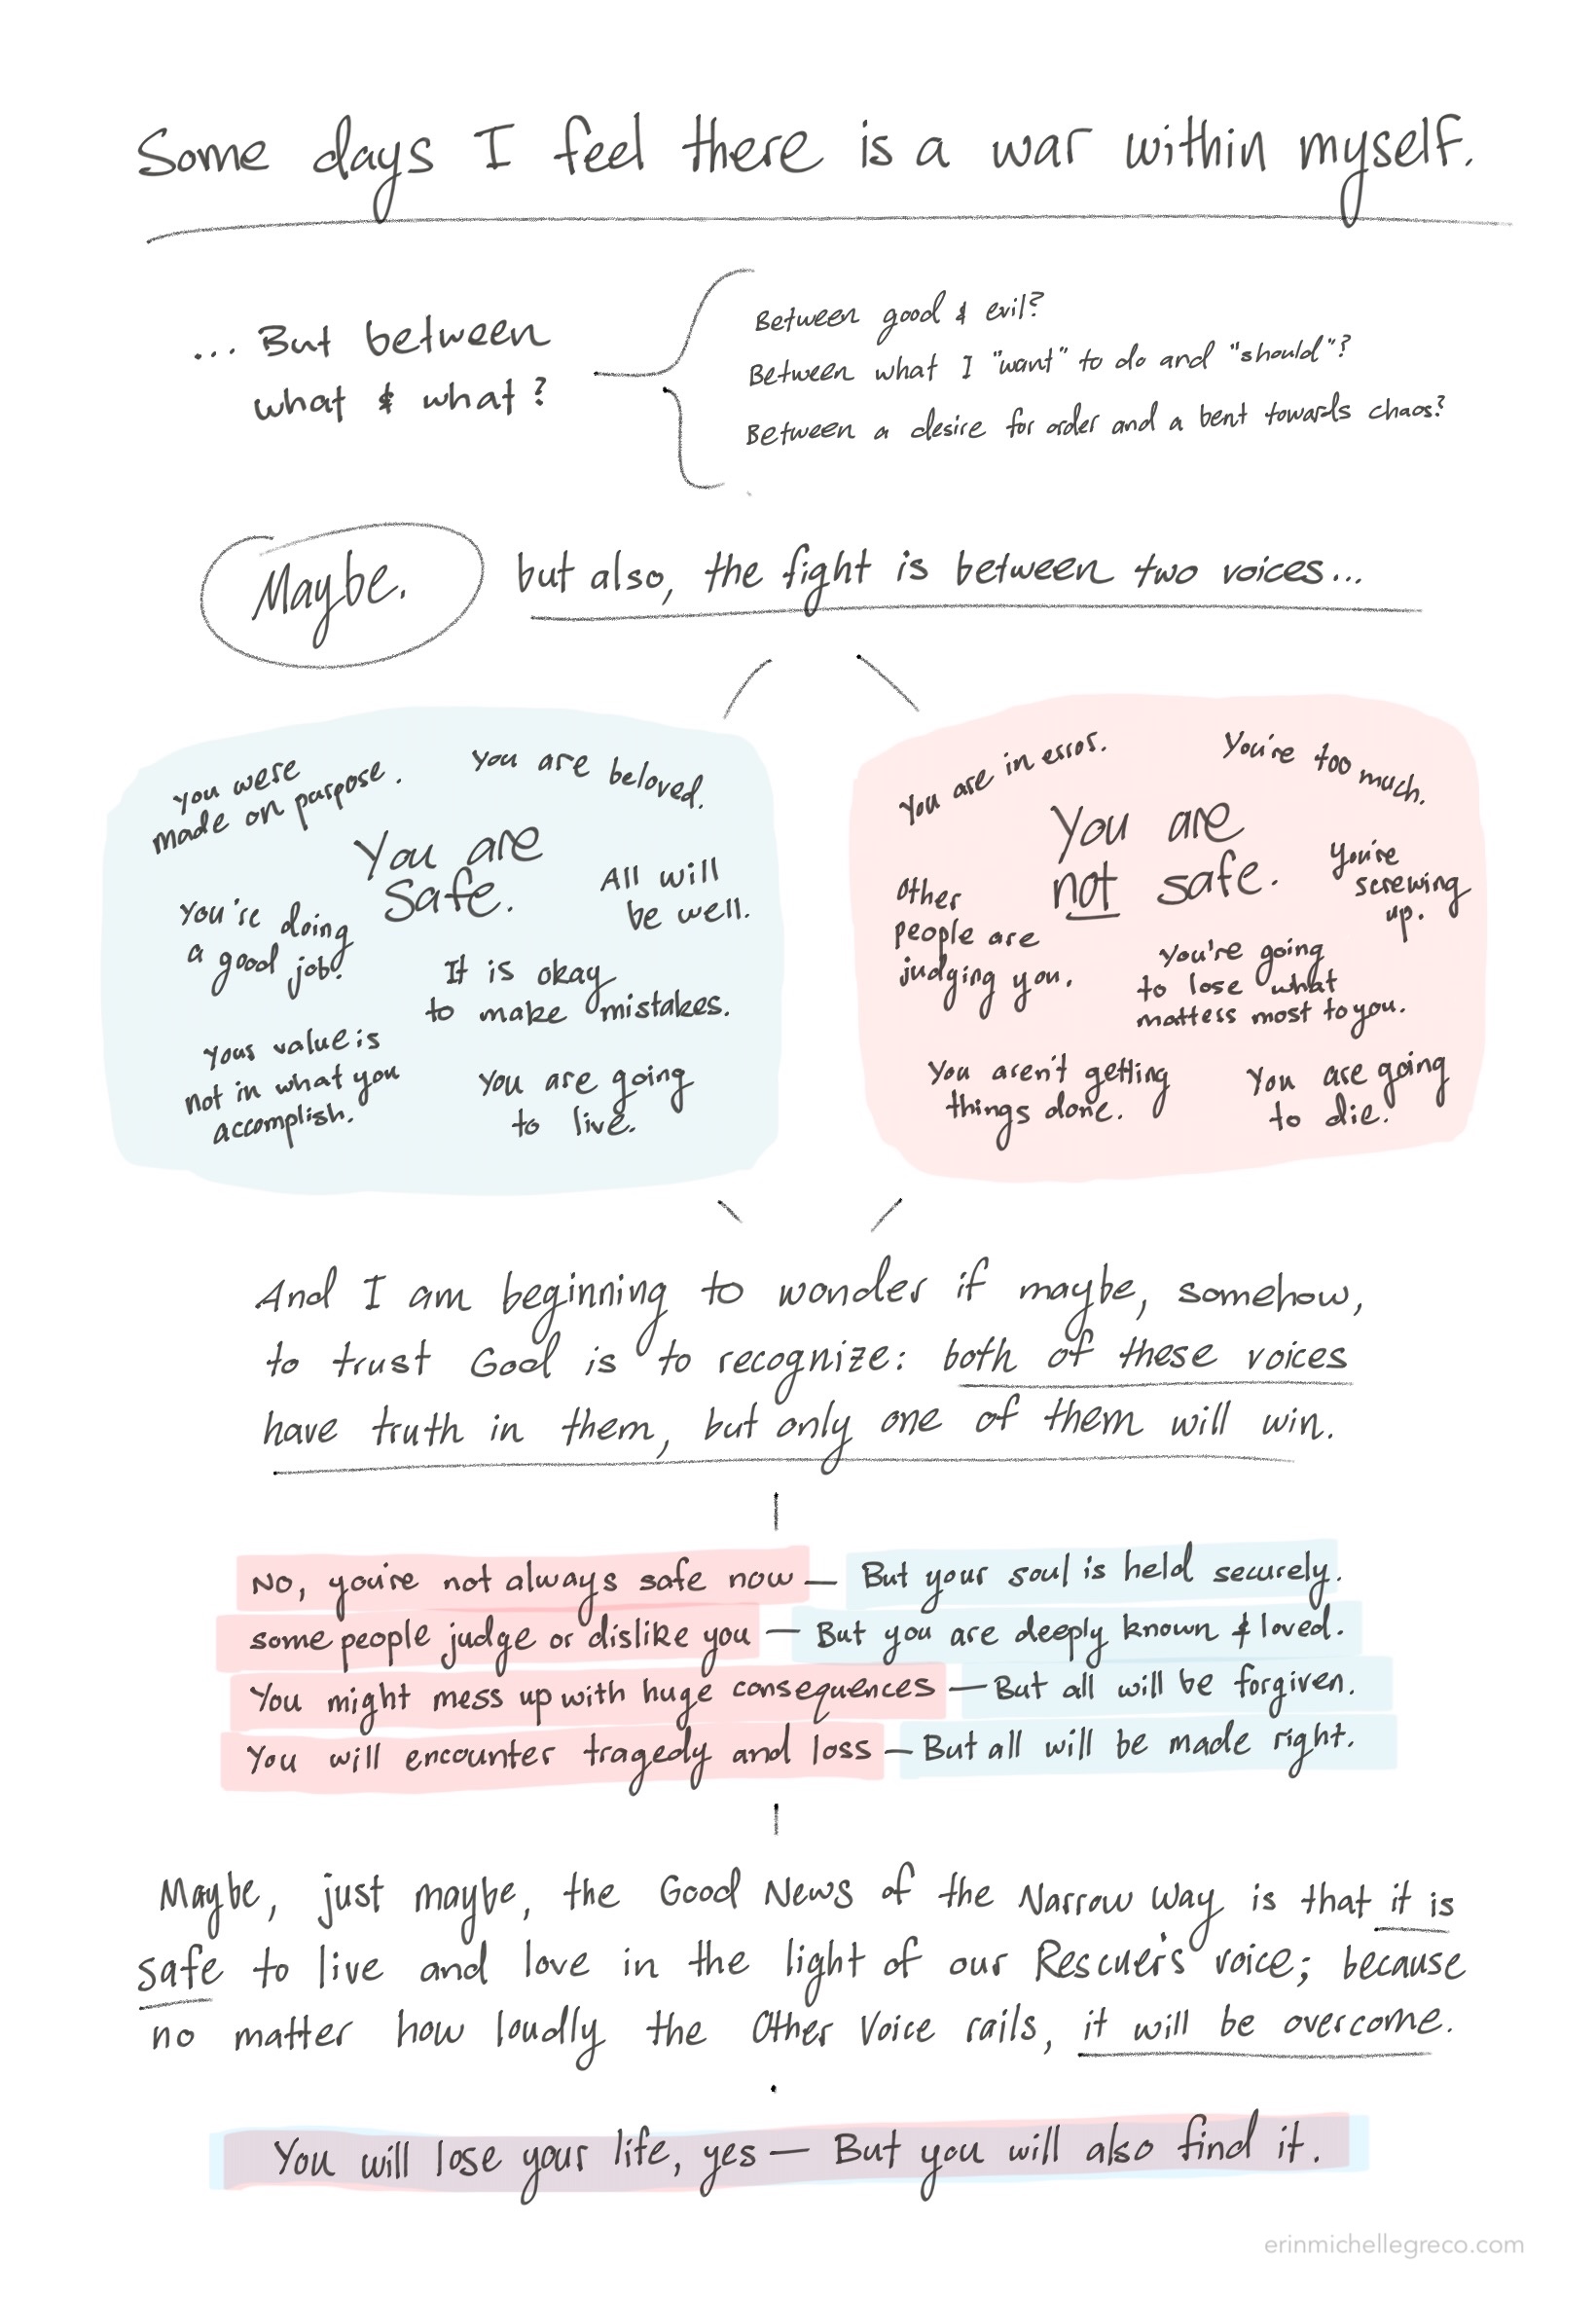 Some days I feel there is a war within myself.
... But between
what & what?
Between good & evil?
Between what I "want" to do and "should"?
Between a desire for order and a bent towards chaos?
Maybe.
but also, the fight is between two voices...
You were
made on purpose.
You are beloved.
You are
safe.
All will
be well.
You're doing
a good job.
It is okay
to make mistakes.
Your value is
not in what you
accomplish.
You are going
to live.
You are in error.
You're too much.
You are
not safe.
You're
screwing
up.
Other
people are
judging you.
You're going
to lose what
matters most to you.
You aren't getting
things done.
You are going
to die.
And I am beginning to wonder if maybe, somehow,
to trust God is to recognize: both of these voices
have truth in them, but only one of them will win.
No, you're not always safe now — But your soul is held securely.
some people judge or dislike you — But you are deeply known & loved.
You might mess up with huge consequences — But all will be forgiven.
You will encounter tragedy and loss — But all will be made right.
Maybe, just maybe, the Good News of the Narrow Way is that it is
safe to live and love in the light of our Rescuer's voice; because
no matter how loudly the Other Voice rails, it will be overcome.
You will lose your life, yes — But you will also find it.
erinmichellegreco.com